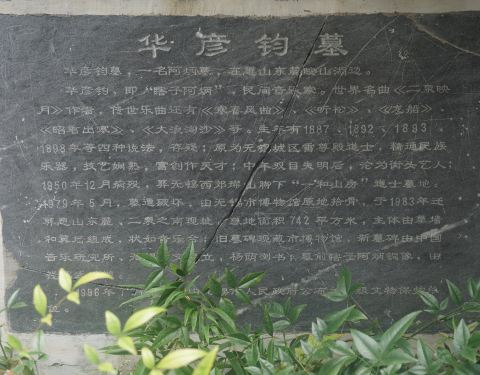 华彦钧墓
华彦钧墓，一名阿炳墓，在惠山东麓映山湖边。
华彦钧，即“瞎子阿炳”，民间音乐家。世界名曲《二泉映
月》作者，传世乐曲还有《寒春风曲》、《听松》、《龙船》
《昭君出塞》、《大浪淘沙》等。生年有1887、1892、1893、
1898年等四种说法，存疑；原为无锡城区雷尊殿道士，精通民族
乐器，技艺娴熟，富创作天才；中年双目失明后，沦为街头艺人；
1950年12月病殁，葬无锡西郊璨山脚下“一和山房”道士墓地。
1979年5月，墓遭破坏，由无锡市博物馆原地拾骨，于1983年迁
葬惠山东麓、二泉之南现址，墓地面积742平方米，主体由墓墙
和翼墙组成，状如音乐台；旧墓碑现藏市博物馆，新墓碑由中国
音乐研究所、立，杨荫浏书；墓前瞎子阿炳铜像，由
民政府公布文物保护单
位。